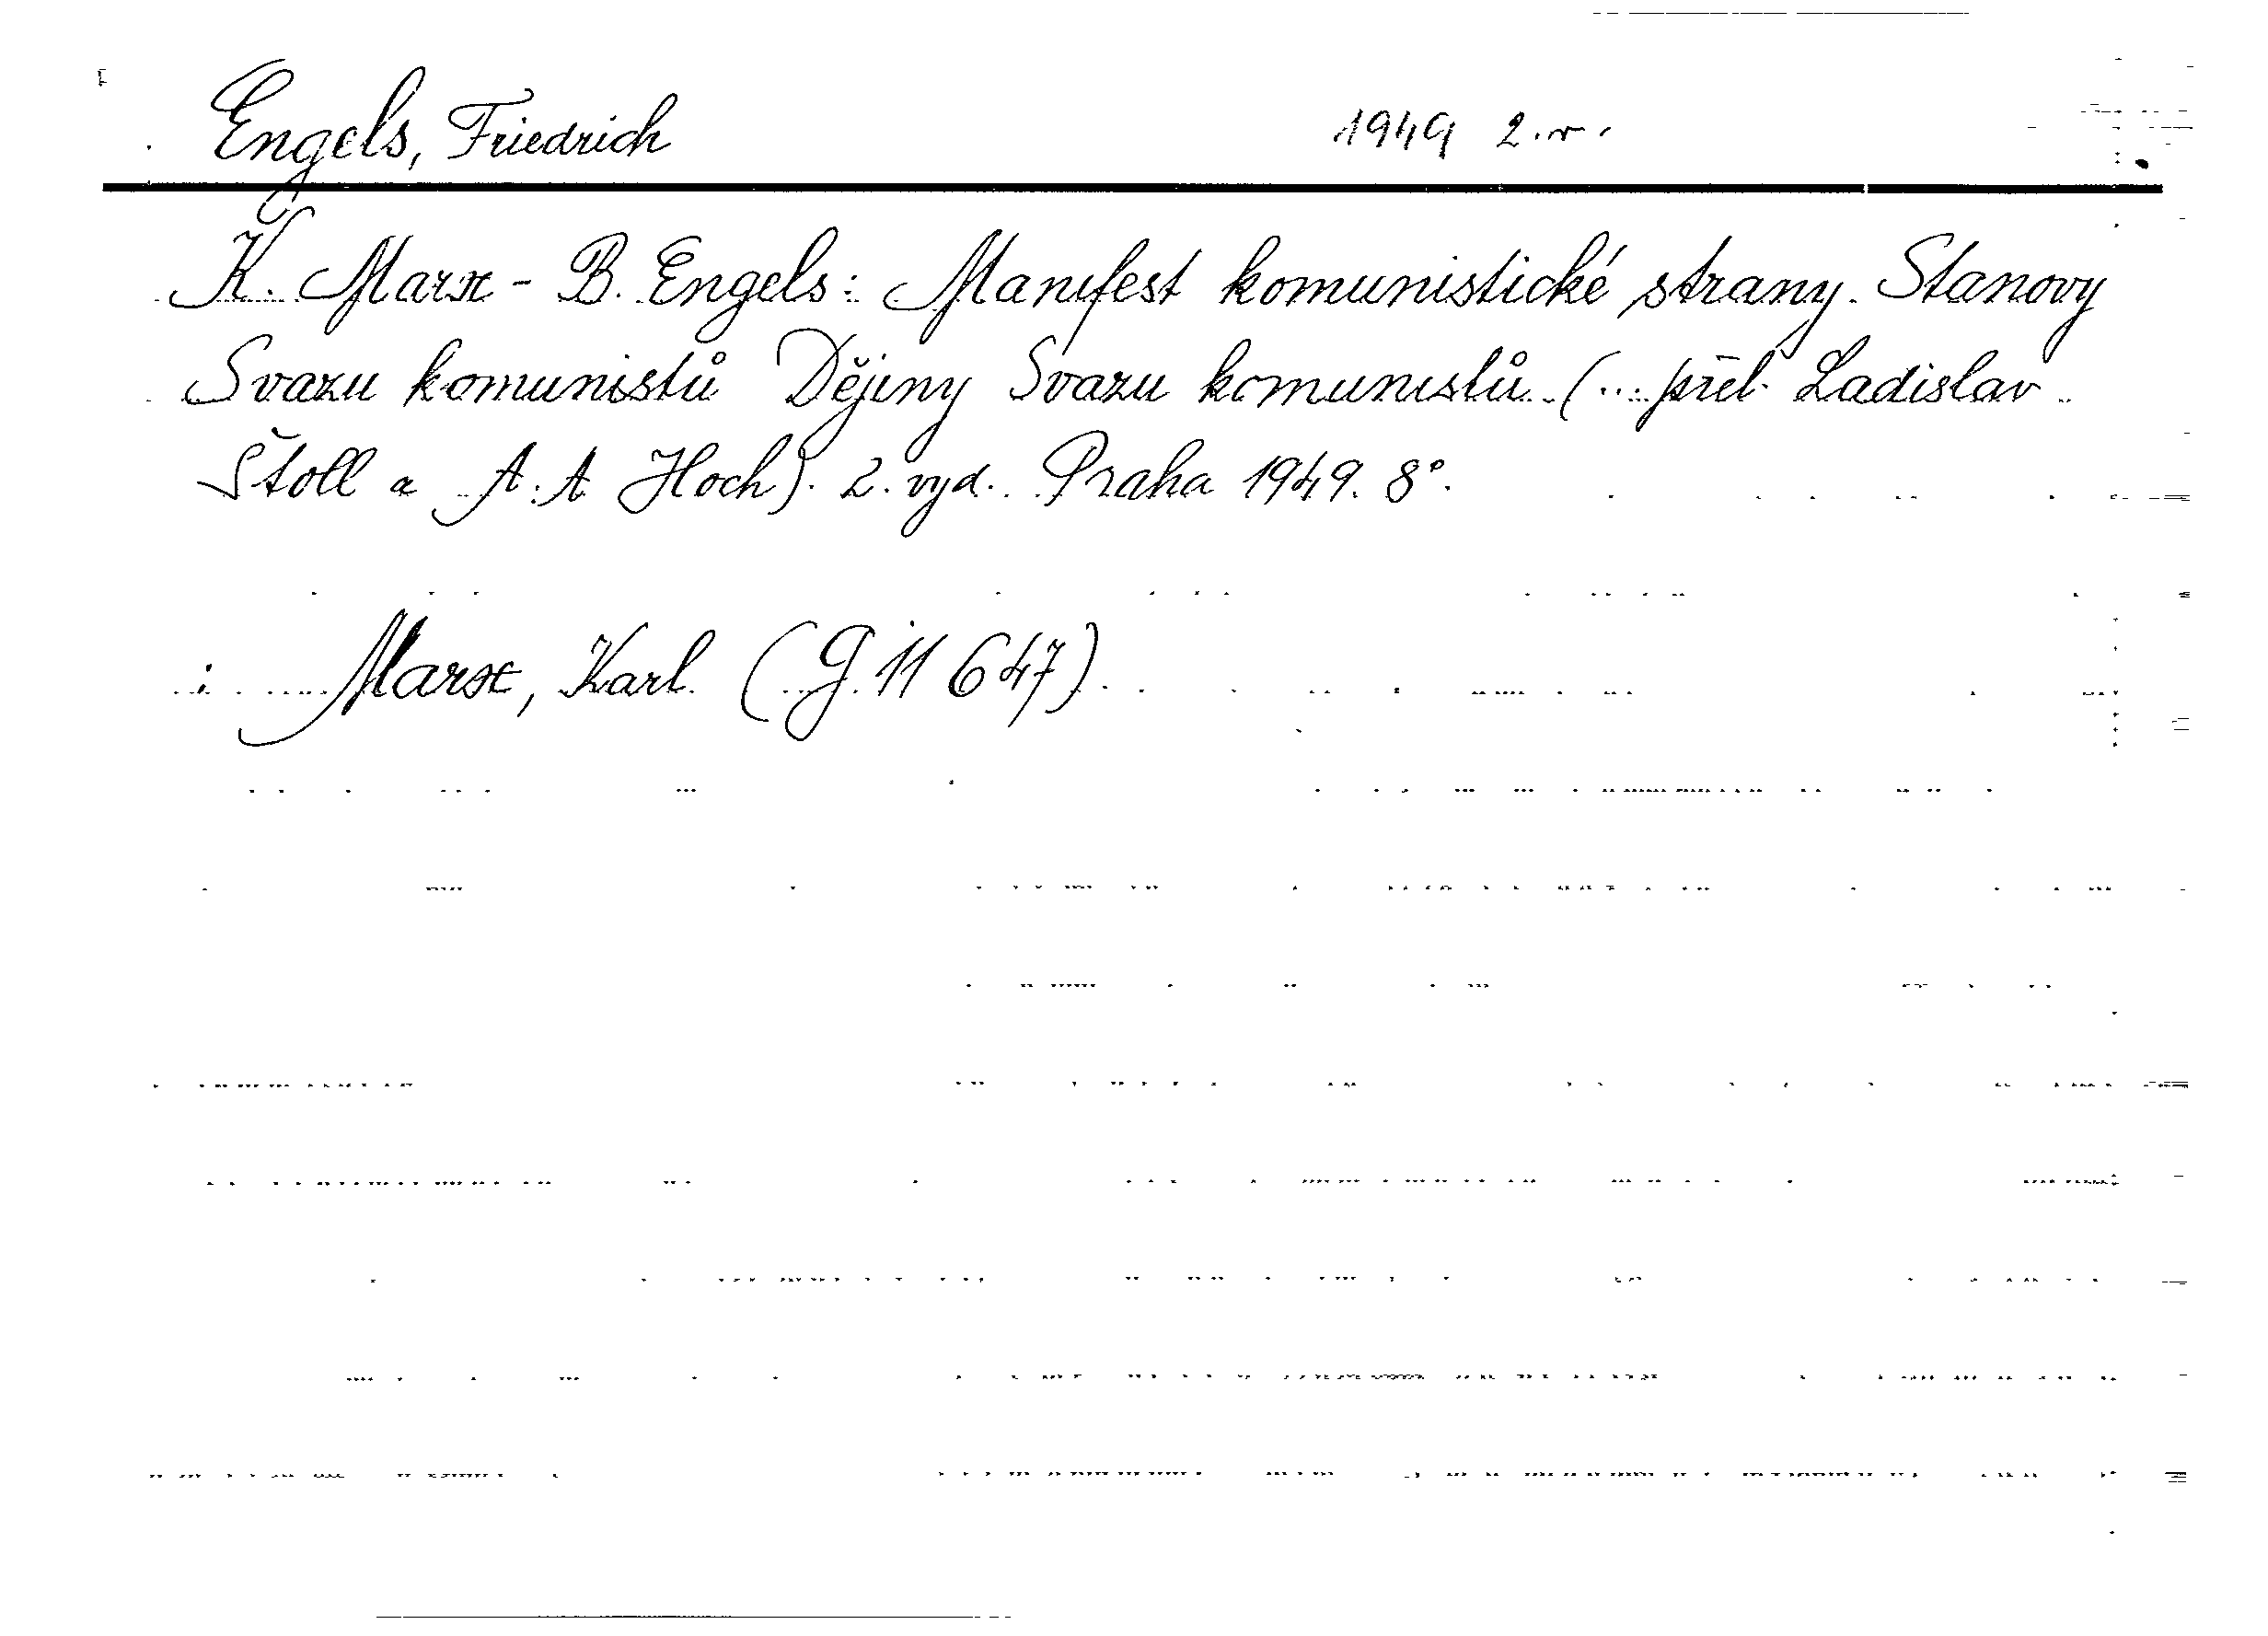 Engels, Friedrich 1949 2.v.
K. Marx - B. Engels: Manifest komunistické strany. Stanovy
Svazu komunistů Dějiny Svazu komunistů (... přel. Ladislav
Štoll a A. A. Hoch). 2. vyd. Praha 1949. 8°.
: Marx, Karl. (G 11 647).